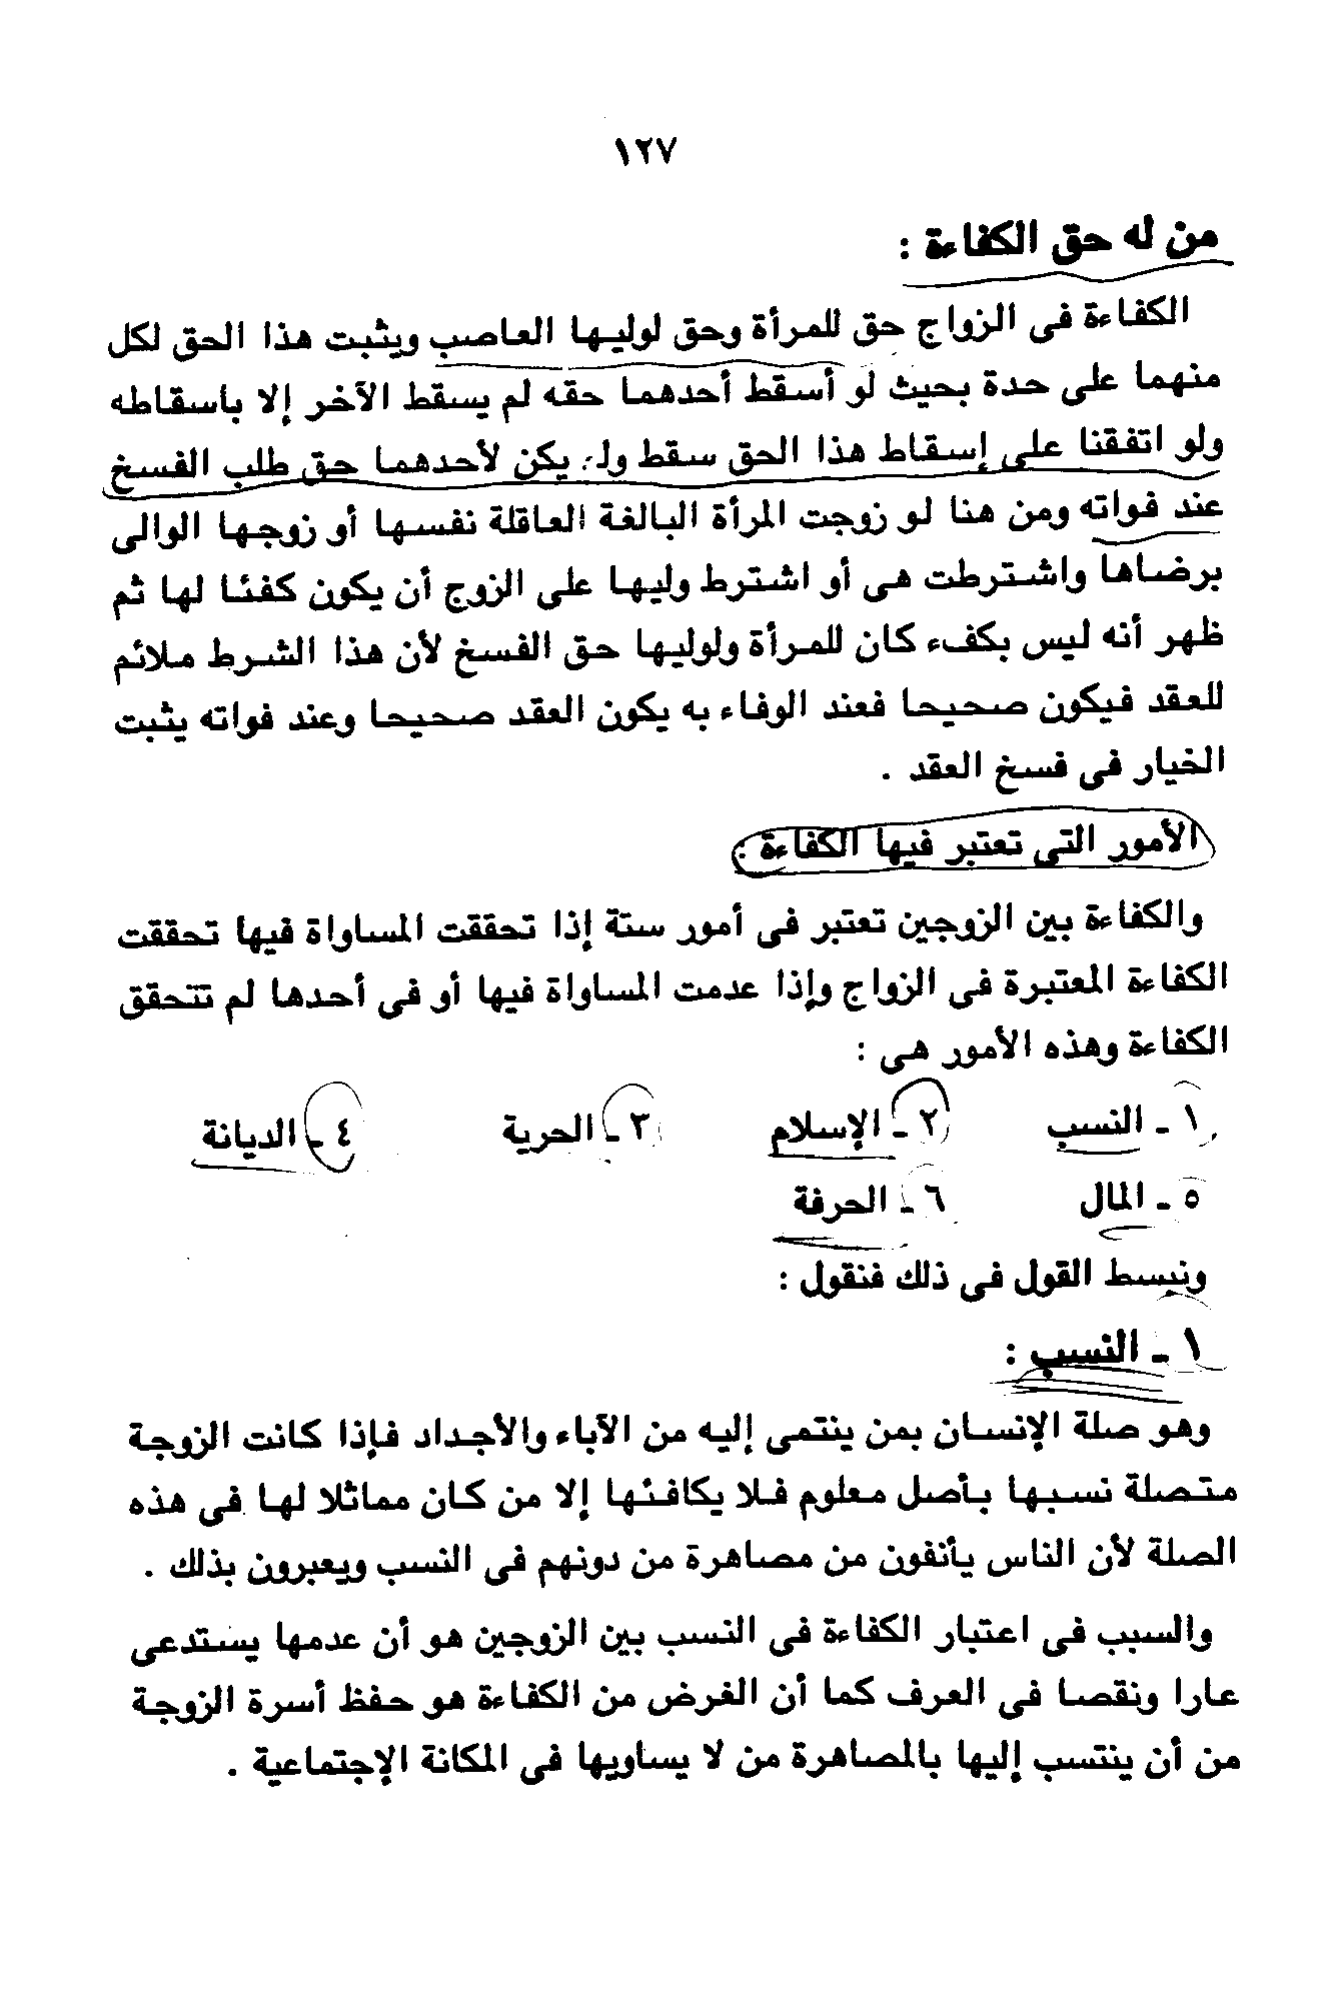 ١٢٧
من له حق الكفاءة :
الكفاءة فى الزواج حق للمرأة وحق لوليها العاصب ويثبت هذا الحق لكل
منهما على حدة بحيث لو أسقط أحدهما حقه لم يسقط الآخر إلا باسقاطه
ولو اتفقنا على إسقاط هذا الحق سقط ولم يكن لأحدهما حق طلب الفسخ
عند فواته ومن هنا لو زوجت المرأة البالغة العاقلة نفسها أو زوجها الوالى
برضاها واشترطت هى أو اشترط وليها على الزوج أن يكون كفئا لها ثم
ظهر أنه ليس بكفء كان للمرأة ولوليها حق الفسخ لأن هذا الشرط ملائم
للعقد فيكون صحيحا فعند الوفاء به يكون العقد صحيحا وعند فواته يثبت
الخيار فى فسخ العقد .
الأمور التى تعتبر فيها الكفاءة :
والكفاءة بين الزوجين تعتبر فى أمور ستة إذا تحققت المساواة فيها تحققت
الكفاءة المعتبرة فى الزواج وإذا عدمت المساواة فيها أو فى أحدها لم تتحقق
الكفاءة وهذه الأمور هى :
١ ـ النسب ٢ ـ الإسلام ٣ ـ الحرية ٤ ـ الديانة
٥ ـ المال ٦ ـ الحرفة
ونبسط القول فى ذلك فنقول :
١ ـ النسب :
وهو صلة الإنسان بمن ينتمى إليه من الآباء والأجداد فإذا كانت الزوجة
متصلة نسبها بأصل معلوم فلا يكافئها إلا من كان مماثلا لها فى هذه
الصلة لأن الناس يأنفون من مصاهرة من دونهم فى النسب ويعبرون بذلك .
والسبب فى اعتبار الكفاءة فى النسب بين الزوجين هو أن عدمها يستدعى
عارا ونقصا فى العرف كما أن الغرض من الكفاءة هو حفظ أسرة الزوجة
من أن ينتسب إليها بالمصاهرة من لا يساويها فى المكانة الإجتماعية .